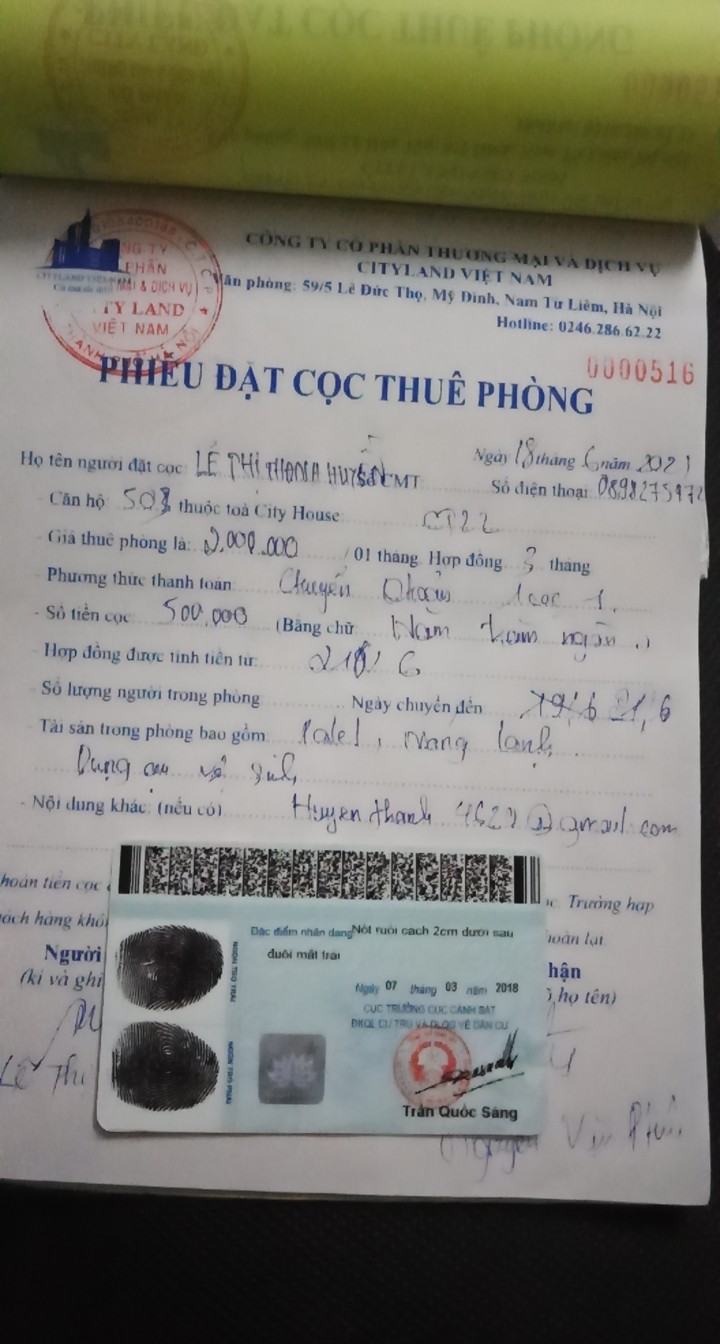 PHIẾU ĐẶT CỌC THUÊ PHÒNG
CÔNG TY CỔ PHẦN THƯƠNG MẠI VÀ DỊCH VỤ
CITYLAND VIỆT NAM
Văn phòng: 59/5 Lê Đức Thọ, Mỹ Đình, Nam Từ Liêm, Hà Nội
Hotline: 0246.286.62.22
NG TY
PHẦN
MẠI & DỊCH VỤ
TY LAND
VIỆT NAM
0000516
PHIẾU ĐẶT CỌC THUÊ PHÒNG
Ngày 18 tháng 6 năm 2021
Họ tên người đặt cọc LÊ THỊ THANH HUYỀN CMT
Số điện thoại:
- Căn hộ 503 thuộc toà City House CT22
- Giá thuê phòng là: 2.000.000 / 01 tháng. Hợp đồng 3 tháng
- Phương thức thanh toán Chuyển khoản 1 cọc 1.
- Số tiền cọc 500,000 (Bằng chữ Năm trăm ngàn .)
- Hợp đồng được tính tiền từ: 21/6
- Số lượng người trong phòng Ngày chuyển đến 21,6
- Tài sản trong phòng bao gồm nóng lạnh
Dụng cụ vệ sinh
- Nội dung khác: (nếu có)
hoàn tiền cọc
ọc. Trường hợp
ách hàng
hoàn lại.
Người
hận
(kí và ghi
họ tên)
Đặc điểm nhân dạng Nốt ruồi cách 2cm dưới sau
đuôi mắt trái
NGÓN TRỎ TRÁI
Ngày 07 tháng 03 năm 2018
CỤC TRƯỞNG CỤC CẢNH SÁT
ĐKQL CƯ TRÚ VÀ DLQG VỀ DÂN CƯ
NGÓN TRỎ PHẢI
Trần Quốc Sáng
Lê Thị
Nguyễn Văn